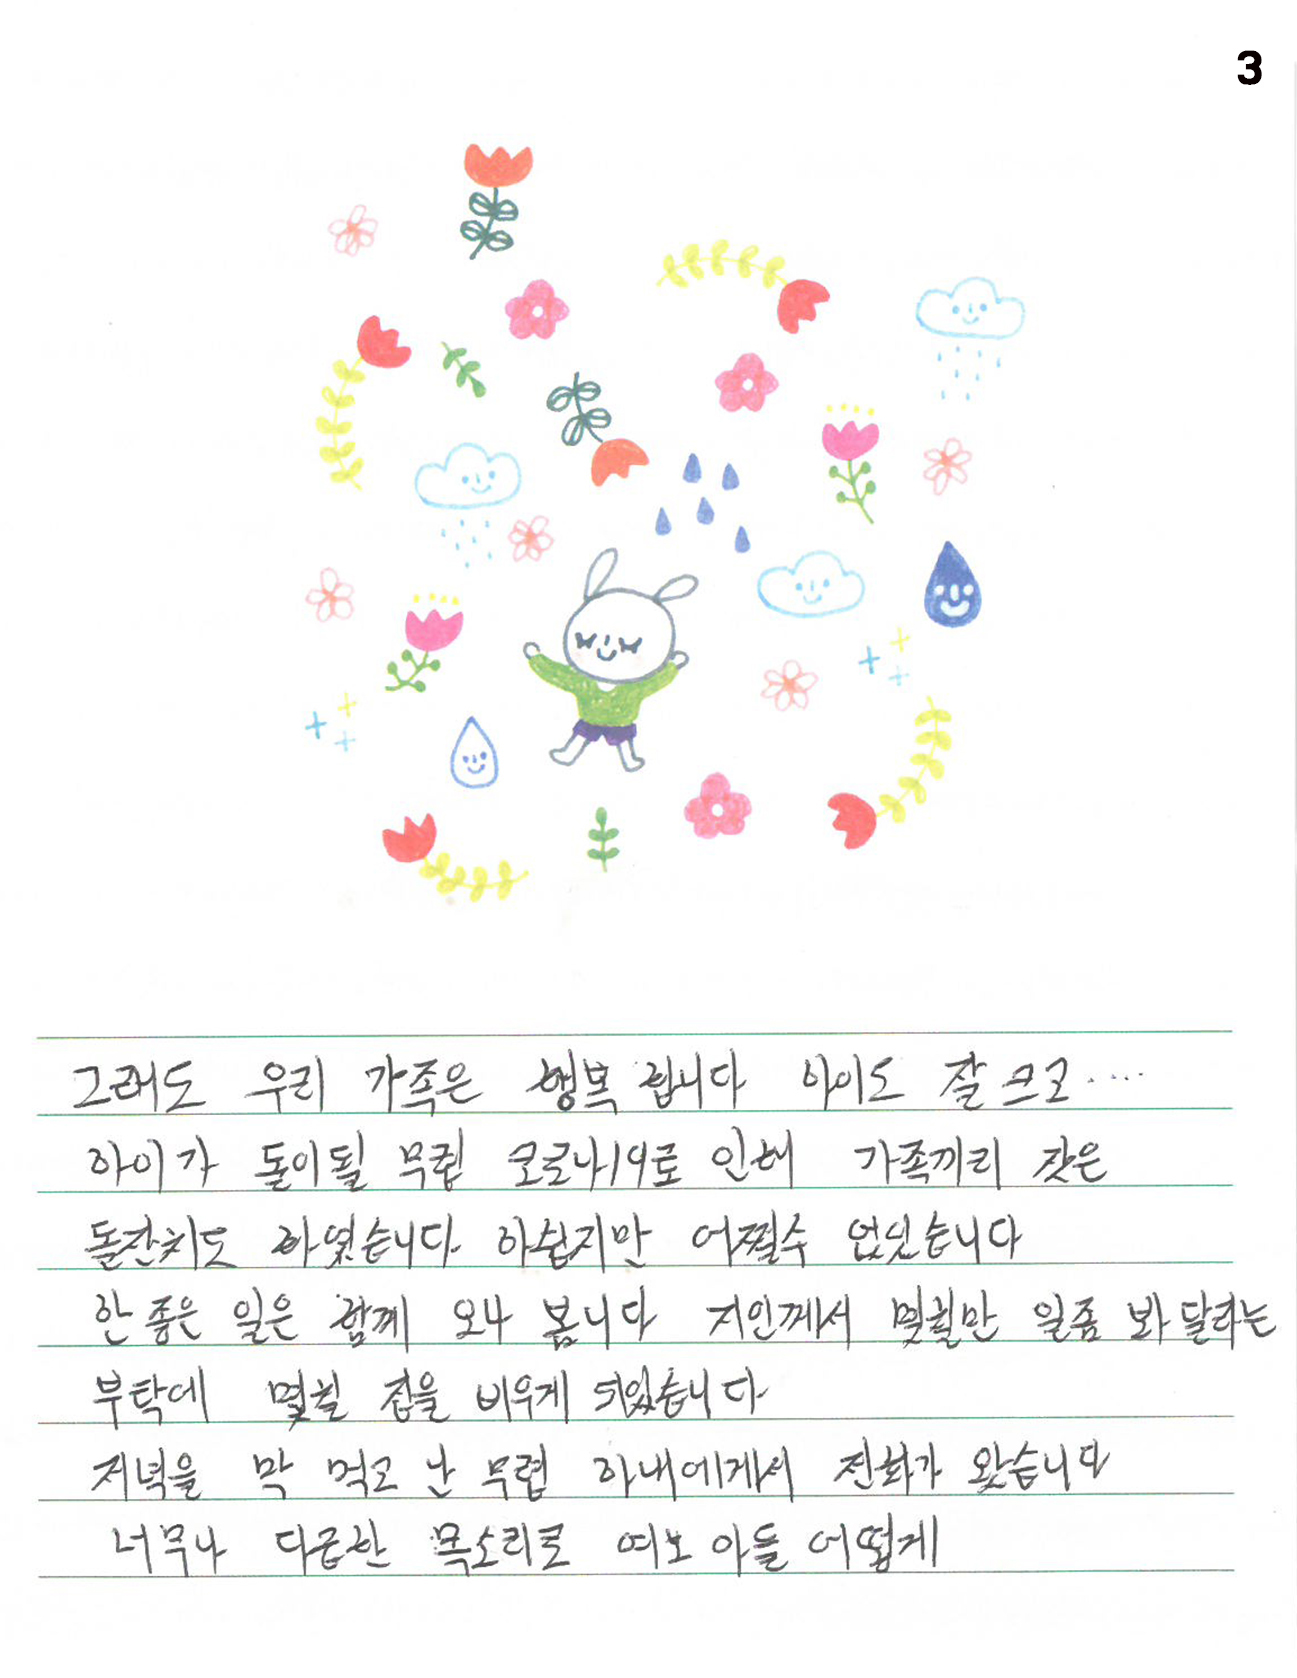 3
그래도 우리 가족은 행복 합니다 아이도 잘 크고....
아이가 돌이될 무렵 코로나19로 인해 가족끼리 작은
돌잔치도 하였습니다. 아쉽지만 어쩔수 없었습니다
안 좋은 일은 함께 오나 봅니다 지인께서 몇칠만 일좀 봐 달라는
부탁에 몇칠 집을 비우게 되었습니다.
저녁을 막 먹고 난 무렵 아내에게서 전화가 왔습니다
너무나 다급한 목소리로 여보 아들 어떻게